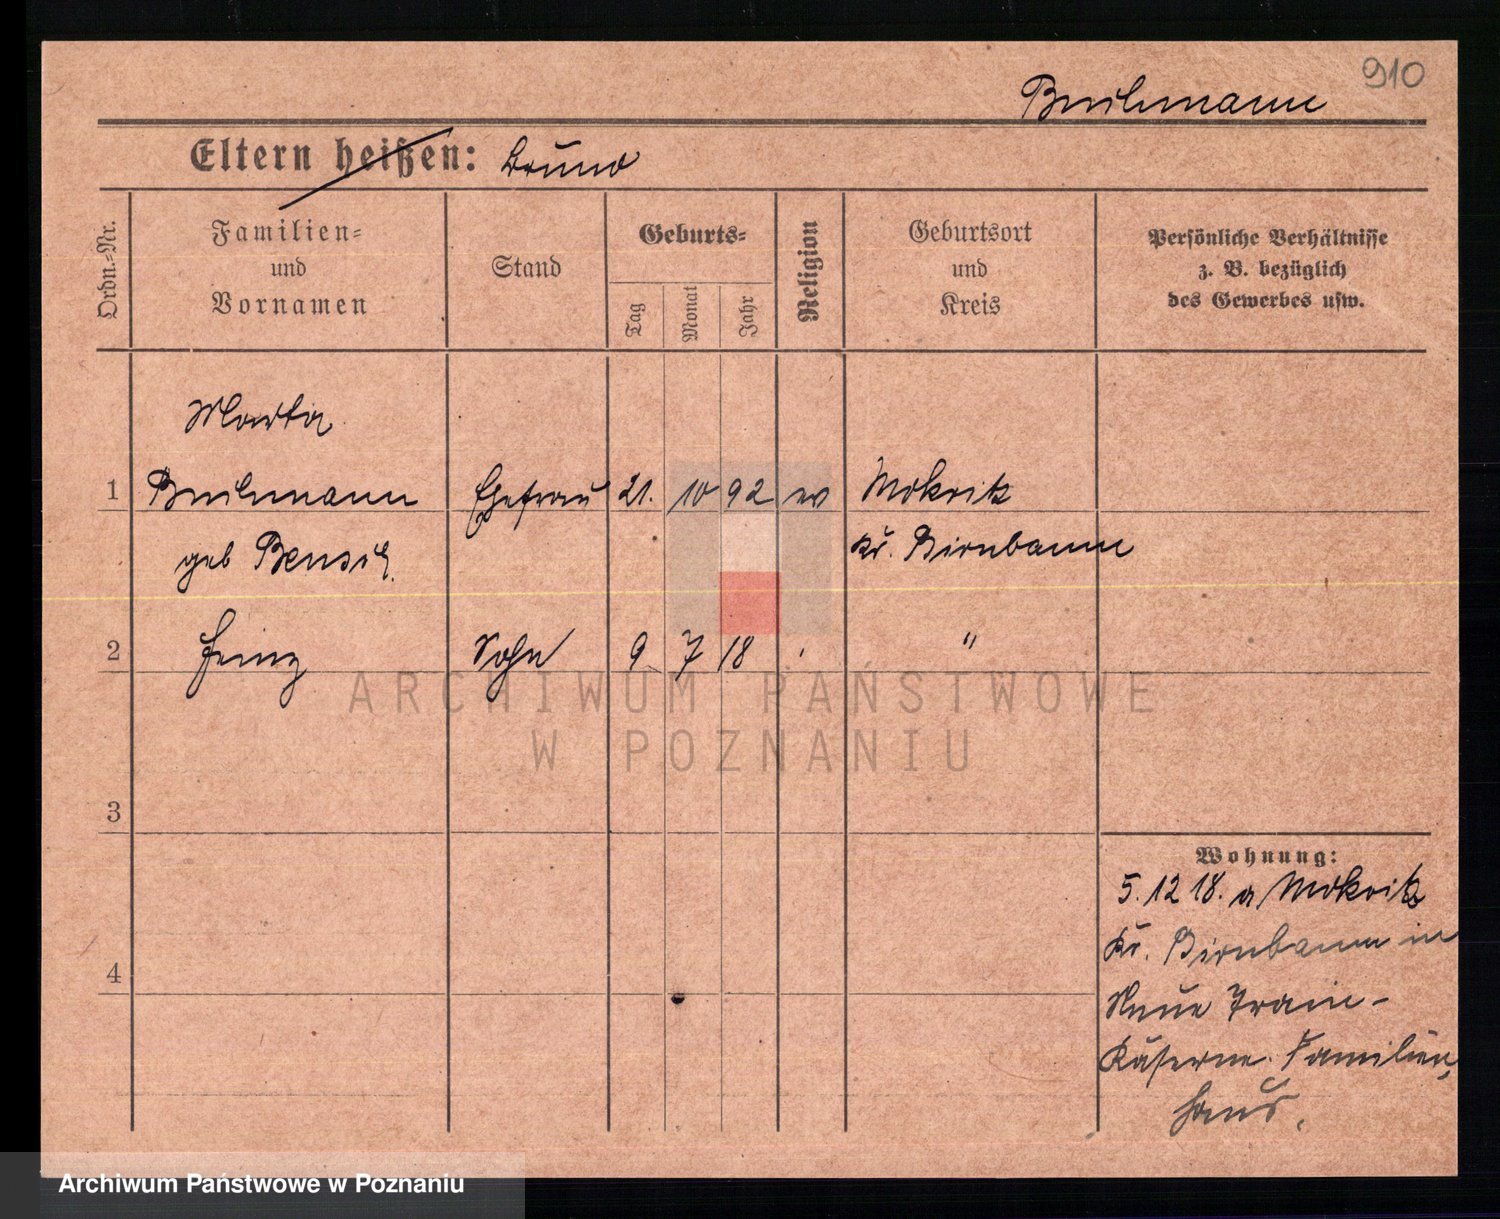 910
Bruhmann
Eltern heißen: Bruno
Ordn.-Nr.
Familien-
und
Vornamen
Stand
Geburts-
Tag
Monat
Jahr
Religion
Geburtsort
und
Kreis
Persönliche Verhältnisse
z. B. bezüglich
des Gewerbes usw.
Marta
1 Bruhmann Ehefrau 21. 10 92 ev Mokritz
geb Kr. Birnbaum
2 Heinz Sohn 9 7 18 "
ARCHIWUM PAŃSTWOWE
W POZNANIU
3
Wohnung:
5. 12 18. a Mokritz
Kr. Birnbaum in
4
Neue Train-
Kaserne. Familien
haus.
Archiwum Państwowe w Poznaniu